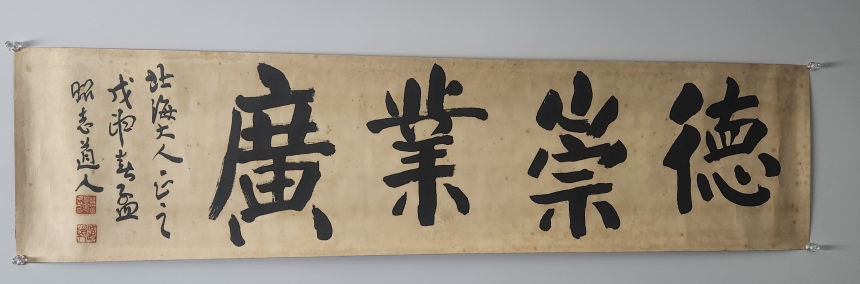 德崇業廣
北海大人正之
戊申春孟
昭志道人